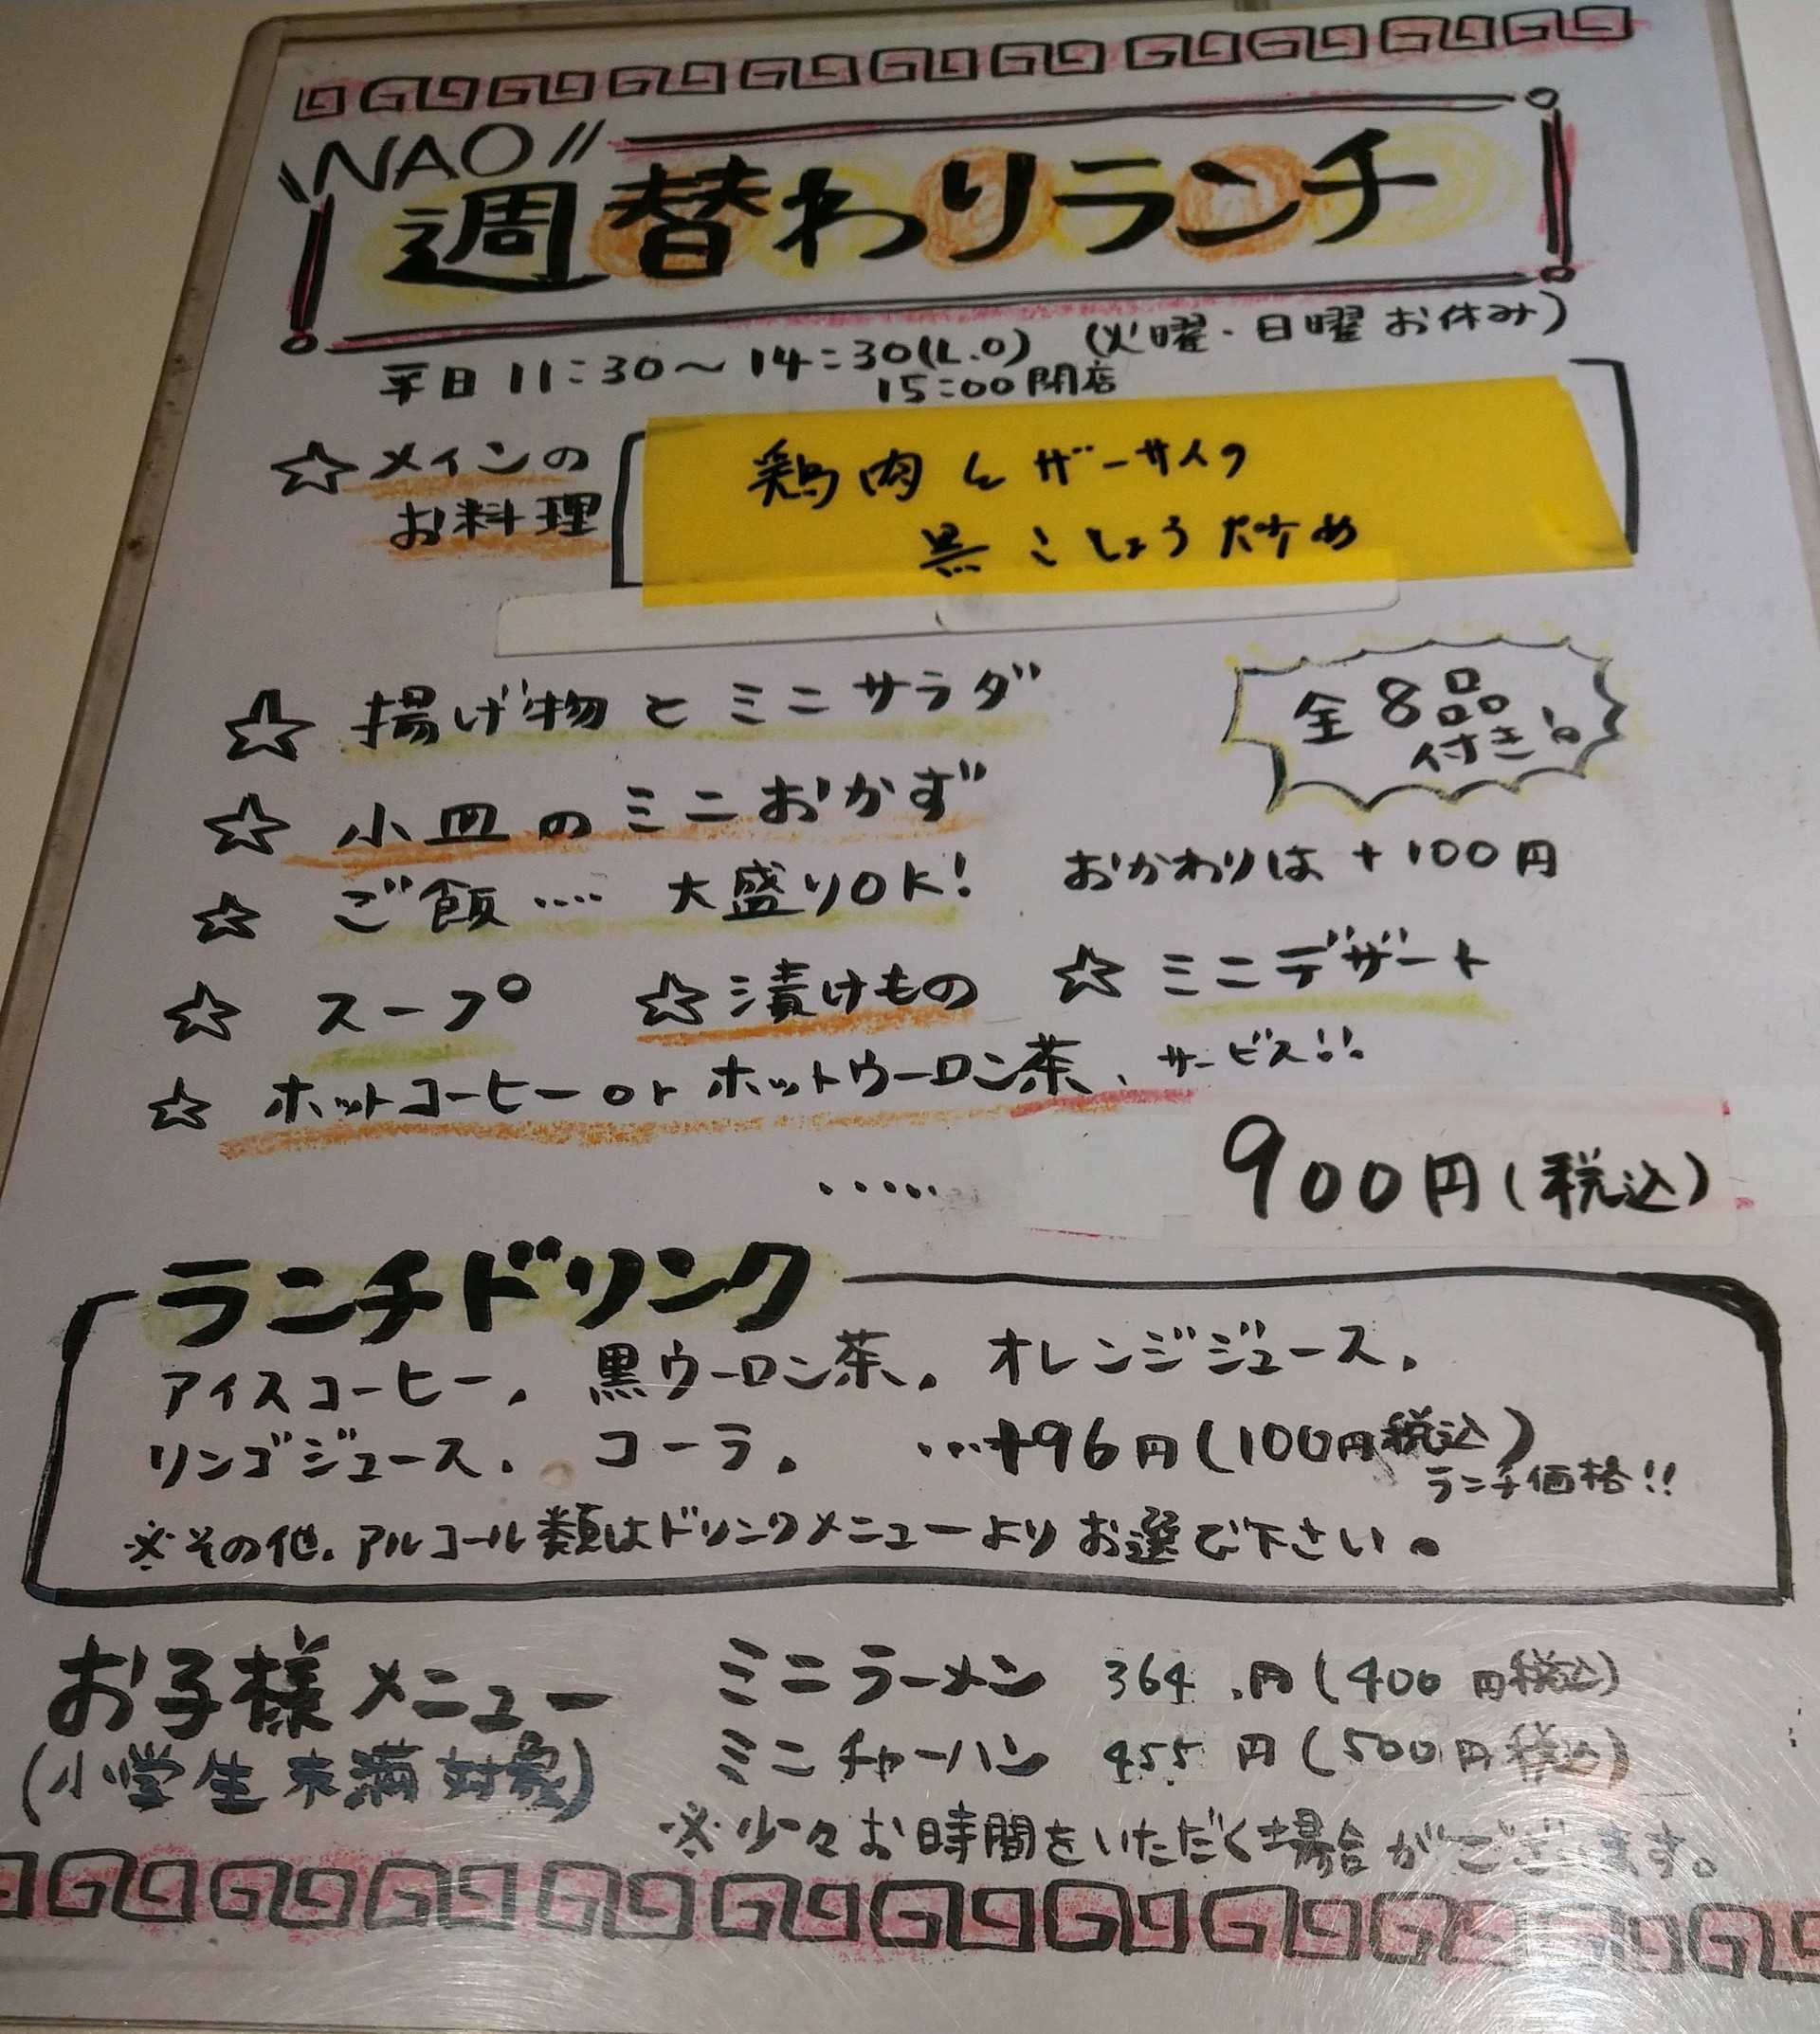 \\NAO//
週替わりランチ
平日 11:30～14:30(L.O) (火曜・日曜 お休み)
15:00閉店
☆メインの
お料理
鶏肉とザーサイの
黒こしょう炒め
☆ 揚げ物とミニサラダ
全8品
付き!
☆ 小皿のミニおかず
☆ ご飯…. 大盛りOK! おかわりは+100円
☆ スープ ☆漬けもの ☆ミニデザート
☆ ホットコーヒーorホットウーロン茶、サービス!!
..... 900円(税込)
ランチドリンク
アイスコーヒー, 黒ウーロン茶, オレンジジュース,
リンゴジュース, コーラ, …+96円(100円税込)
ランチ価格!!
※その他, アルコール類はドリンクメニューよりお選び下さい。
お子様メニュー
(小学生未満対象)
ミニラーメン 364円(400円税込)
ミニチャーハン 455円(500円税込)
※少々お時間をいただく場合がございます。